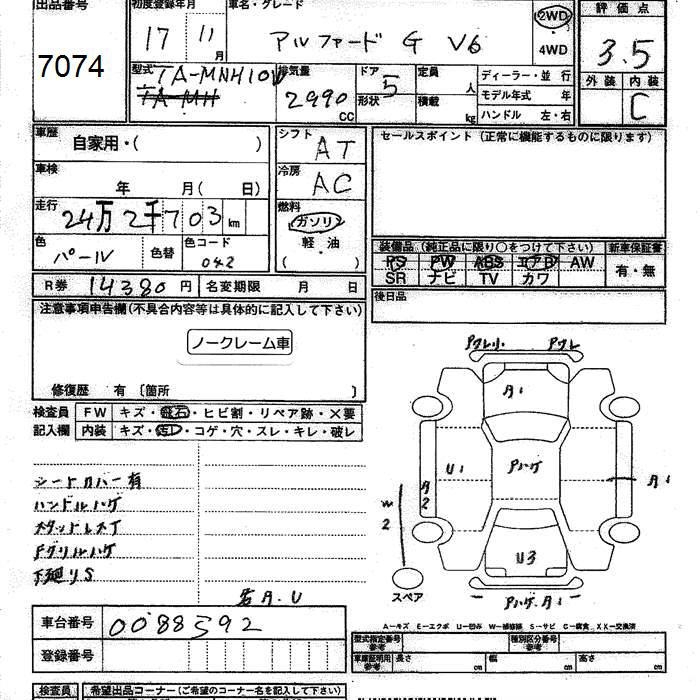 出品番号
7074
初度登録年月
17 11 月
車名・グレード
アルファード G V6
2WD
4WD
評価点
3.5
外装 内装
C
型式
TA-MNH10W
排気量
2990 CC
ドア
5
形状
定員 人
積載 kg
ディーラー・並 行
モデル年式 年
ハンドル 左・右
車歴
自家用・( )
車検
年 月( 日)
走行
24万2千703 km
色
パール
色替
色コード
042
シフト
AT
冷房
AC
燃料
ガソリン
軽・油
( )
セールスポイント(正常に機能するものに限ります)
装備品(純正品に限り○をつけて下さい)
新車保証書
PS PW ABS エアB AW
SR ナビ TV カワ
有・無
後日品
R券 14380 円
名変期限 月 日
注意事項申告欄(不具合内容等は具体的に記入して下さい)
ノークレーム車
修復歴 有 〔箇所 〕
検査員
記入欄
FW キズ・飛石・ヒビ割・リペア跡・X要
内装 キズ・汚レ・コゲ・穴・スレ・キレ・破レ
シートカバー有
ハンドルハゲ
スタッドレスT
Fグリルハゲ
下廻りS
若A.U
A1
U1
Pハゲ
A2
A1
W2
U3
スペア
Pハゲ.A1
車台番号
0088592
登録番号
A—キズ E—エクボ U—凹み W—補修跡 S—サビ C—腐食 XX—交換済
型式指定番号
参考
種別区分番号
参考
車庫証明用
参考
長さ cm
幅 cm
高さ cm
検査員
希望出品コーナー(ご希望のコーナー名を記入して下さい)